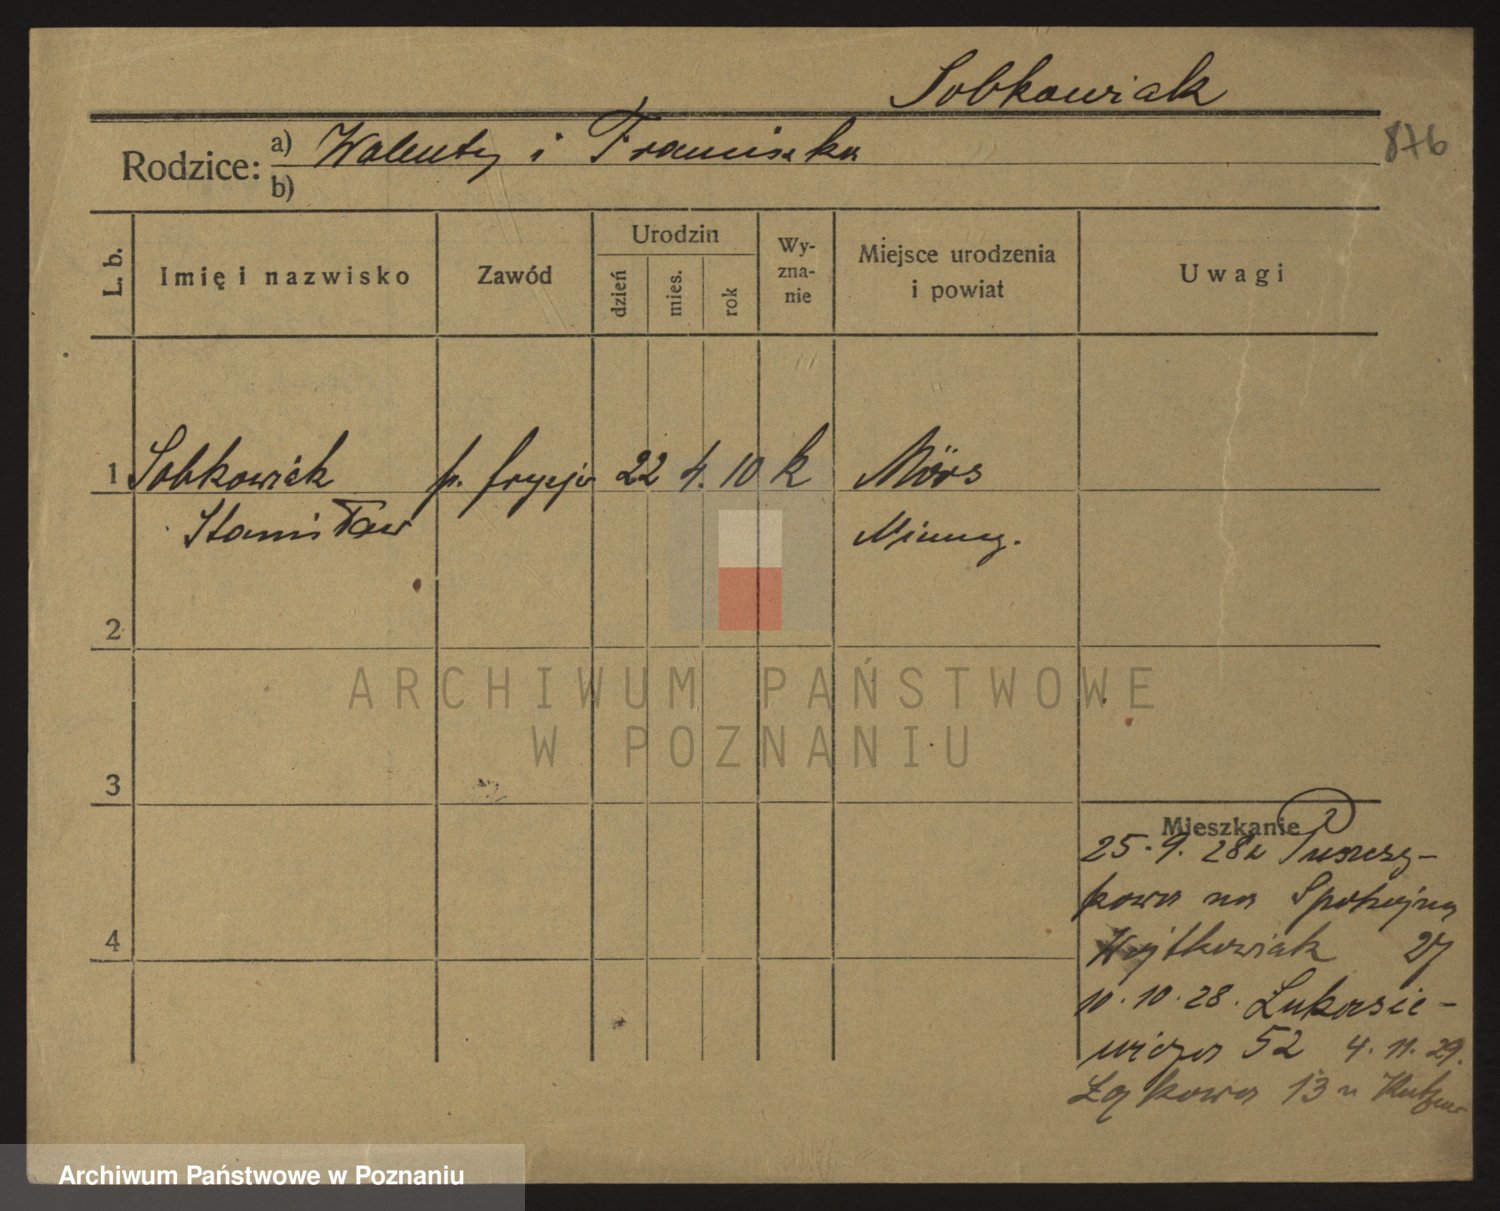 Sobkowiak
876
Rodzice: a) Walenty i Franciszka
b)
L. b. Imię i nazwisko Zawód Urodzin dzień mies. rok Wyzna-nie Miejsce urodzenia i powiat Uwagi
1 Sobkowiak p. fryzje 22 4. 10 k Mörs
Stanisław Niemcy.
2
3
Mieszkanie
25. 9. 28 z
kowa na Spokojną
4
Wojtkowiak 27
10. 10. 28. Łukasie-
wicza 52 4. 11. 29.
Łąkowa 13 u
ARCHIWUM PAŃSTWOWE
W POZNANIU
Archiwum Państwowe w Poznaniu